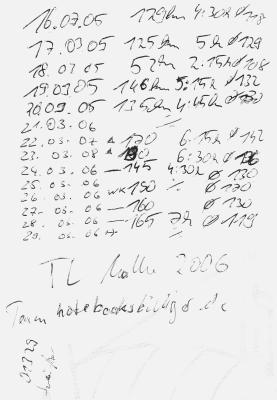 16.03.05 129km 4:30h Ø 118
17.03.05 125km 5h Ø 129
18.03.05 52km 2:15h Ø 108
19.03.05 146km 5:15h Ø 132
20.03.05 135km 4:45h Ø 130
21.03.06 %
22.03.07 170 6:15h Ø 142
23.03.08 6:30h Ø
24.03.06 — 145 4:30h Ø 130
25.03.06 %
26.03.06 WK 190 Ø 170
27.03.06 — 160 Ø 130
28.03.06 — 165 7h Ø 119
29.03.06 %
TL 2006
Team notebooksbilliger.de